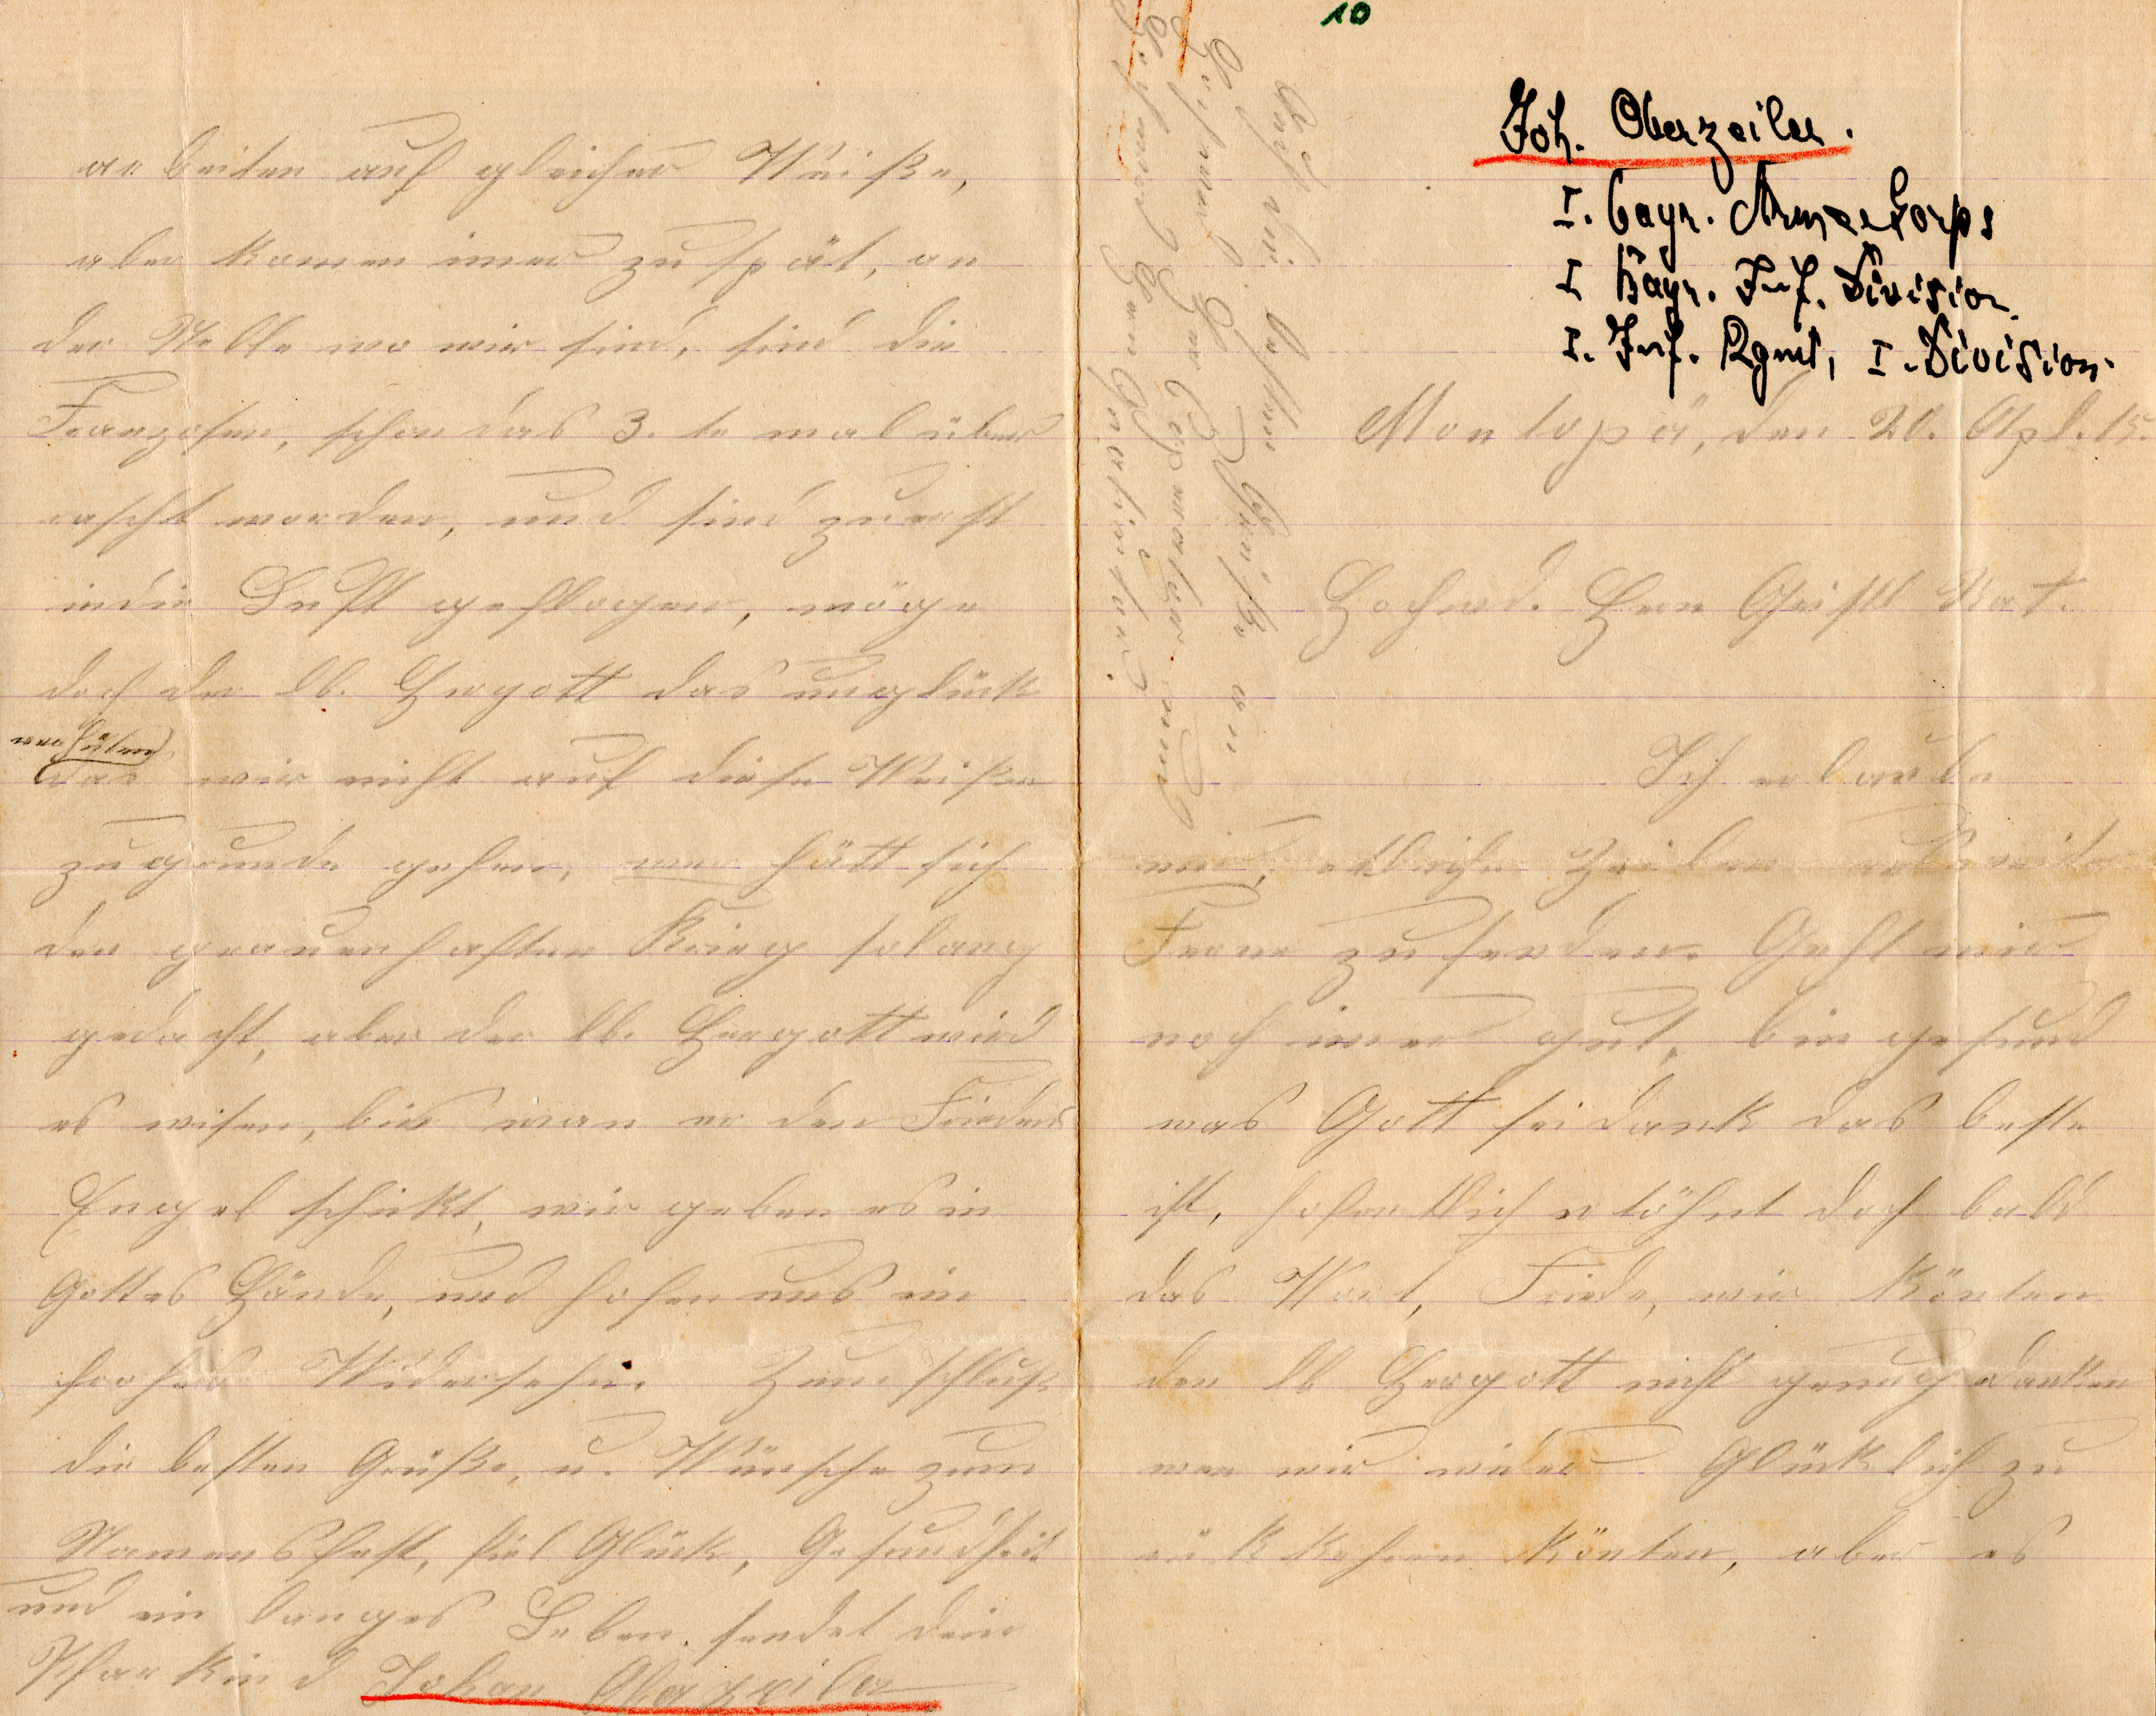 10
Joh. Oberzeiler.
I. bayr. Armeekorps
I Bayr. Inf. Division
I. Inf. Rgmt, I. Division.
Montopä, den 20. Apl. 15.
Hochwd. Herr Geistl Rat.
Ich erlaube
mir, etliche Zeilen
Ferne zu senden. Geht mir
noch imer gut, bin gesund
was Gott sei dank das beste
ist, hofentlich ertöhnt doch bald
das Wort, Friede, wir könten
den lb Hergott nicht genug danken
wen wir wider Glücklich zu
rükkehren könten, aber es
arbeiten auf gleicher Weiße,
aber komen imer zu spät, an
der Stelle wo wir sind, sind die
Franzosen, schon das 3. te mal über
rascht worden, und sind zuerst
in die Luft geflogen, möge
doch der lb. Hergott das unglück
verhüten
das wir nicht auf diese Weiße
zugrunde gehen, wer hätt sich
den grauenhaften Krieg solang
gedacht, aber der lb. Hergott wird
es wisen, bis wan er den Friedens
Engel schikt, wir geben es in
Gottes Hände, und hofen uns ein
frohes Widersehn. Zum schluß
die besten Grüße, u. Wünsche zum
Namensfest, fiel Glück, Gesundheit
und ein langes Leben. sendet dein
Pfarkind Johan Oberzeiler
Auch die besten Grüße an